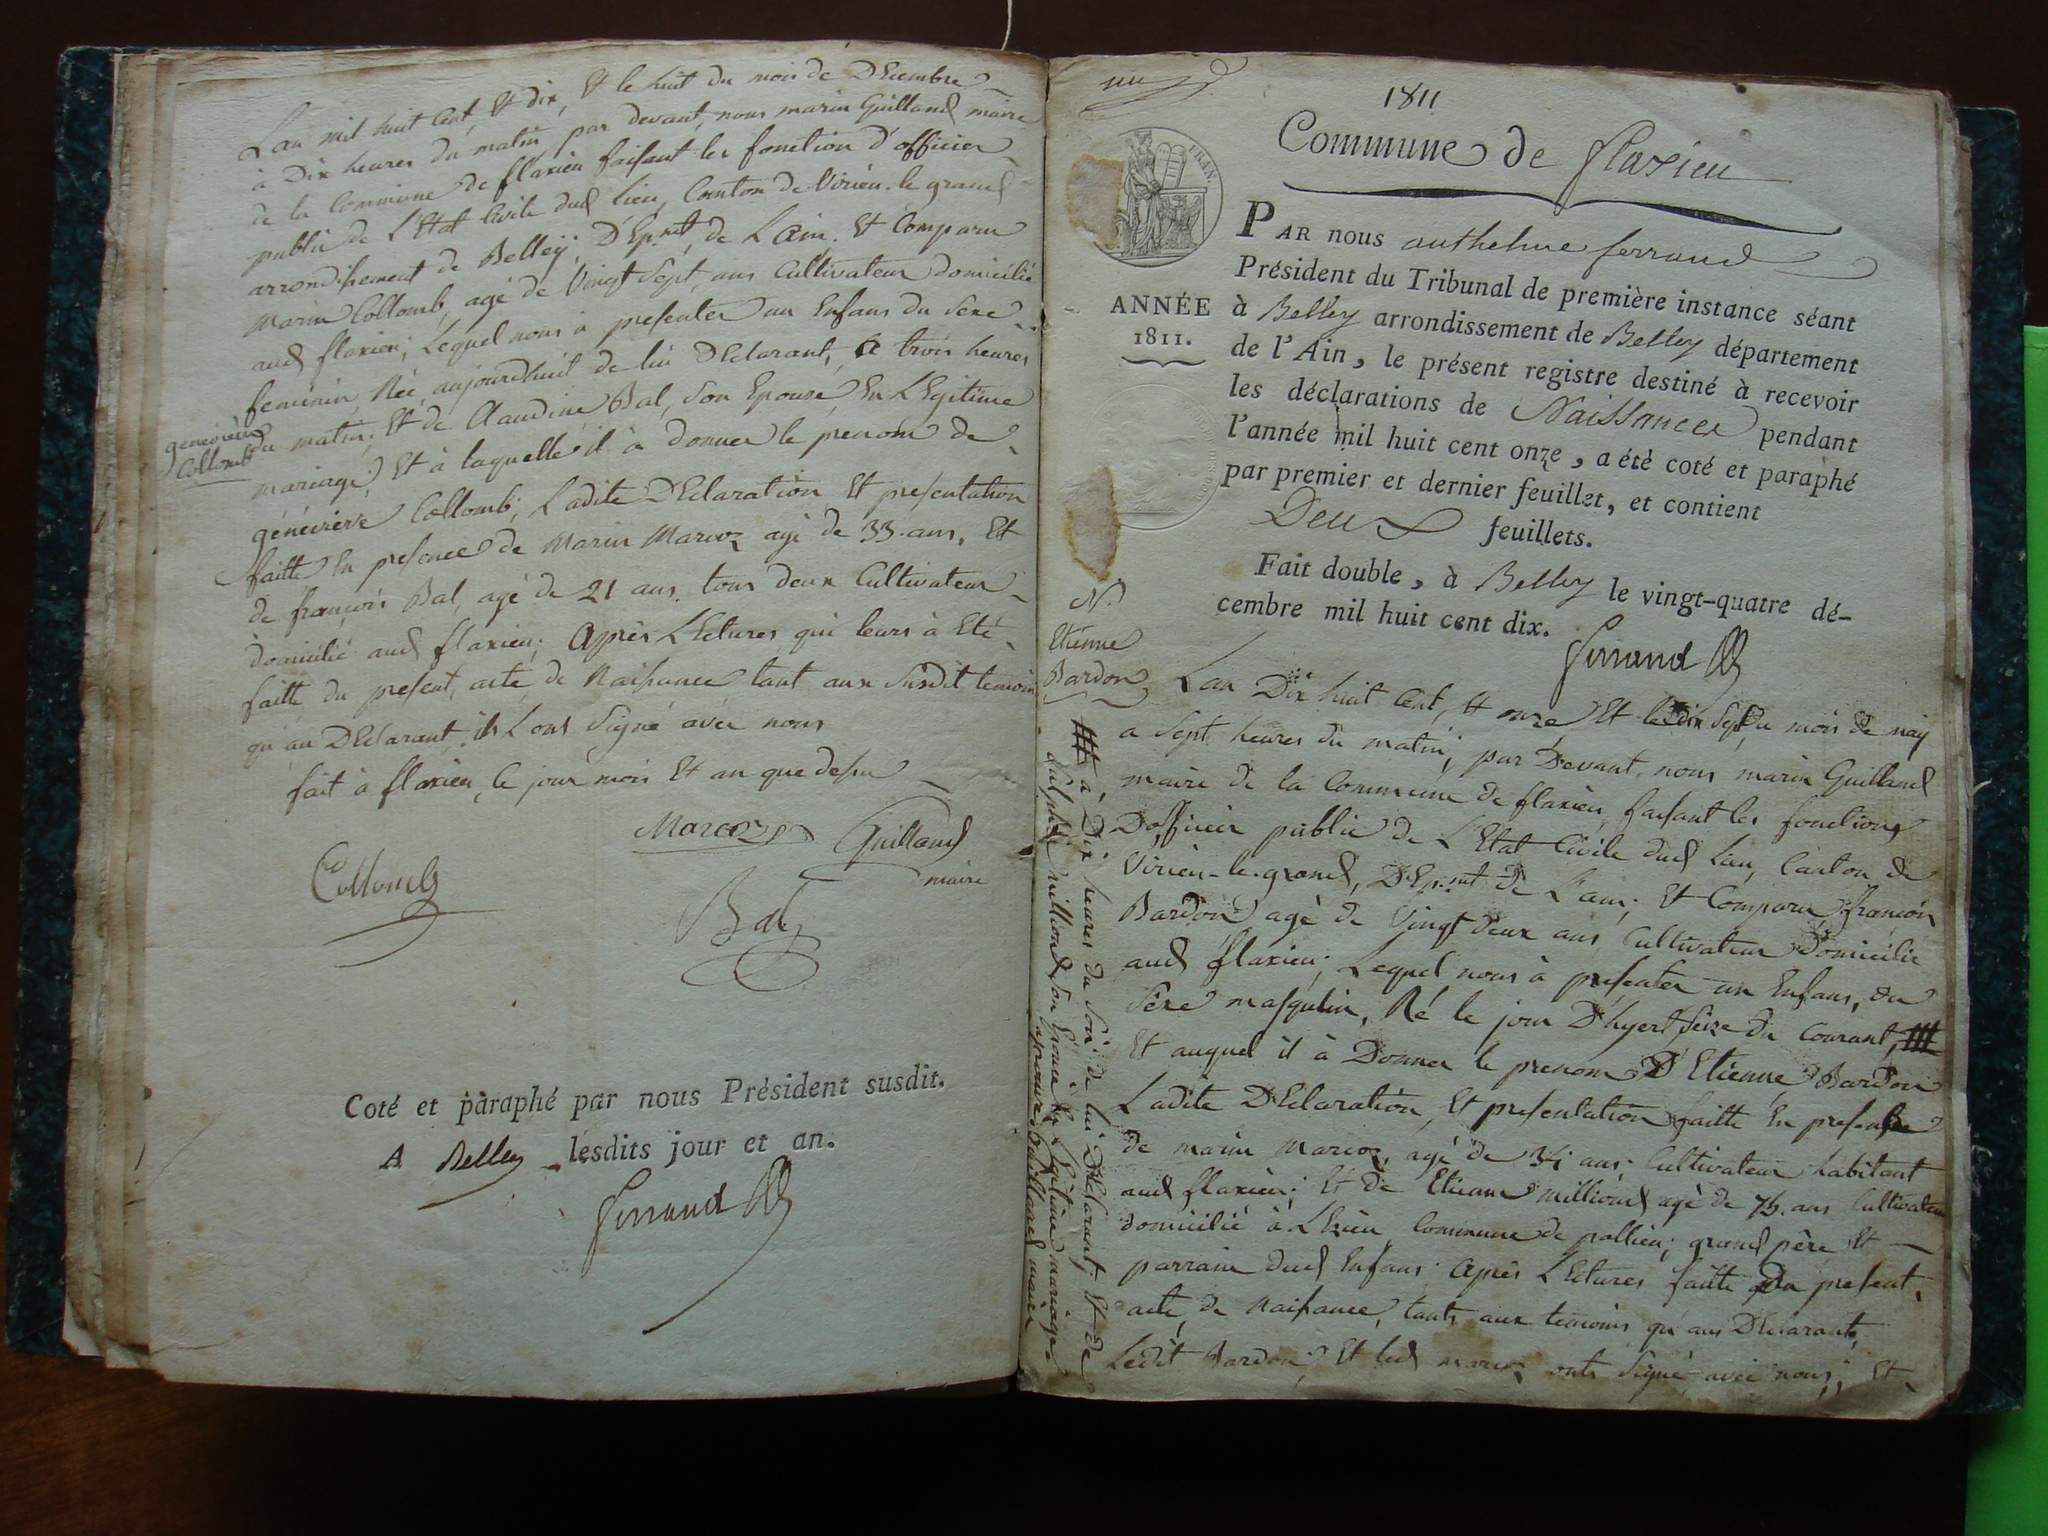 Lan mil huit Cent, Et dix, Et le huit du mois de DEcembre
à Dix heures du matin, par devant, nous marin Guilland maire
de la Commune de flaxieu faisant les fonction d'officier
public de L'Etat Civile dud lieu, Canton de Virieu-le grand
arrondissement de Belley, DEp.mt de L'ain. Et Comparu
Marin Collomb, agé de Vingt Sept, ans Cultivateur domicilié
aud flaxieu; Lequel nous à presenter un Enfans du Sexe
feminin, Née, aujourdhuit de lui DEclarant, à trois heures
du matin; Et de Claudine Bal, Son Epouse, En LEgitime
mariage, Et à laquelle il à donner le prenom de
génévieve Collomb; Ladite DEclaration Et presentation
faitte En presence de Marin Marcoz agé de 33. ans, Et
de françois Bal, agé de 21 ans. tous deux Cultivateur
domicilié aud flaxieu; Après LEctures, qui leurs à Eté
faitte, du present, acte, de Naissance tant aux Susdit temoin
qu'au DEclarant ils L'ont Signé avec nous
fait à flaxieu, le jour mois Et an que dessu
Collomb
Marcoz
Guilland
maire
Bal
Coté et paraphé par nous Président susdit.
A Belley lesdits jour et an.
Ferrand
1811
Commune de flaxieu
FRAN.
PAR nous anthelme ferrand
Président du Tribunal de première instance séant
à Belley arrondissement de Belley département
de l'Ain, le présent registre destiné à recevoir
les déclarations de Naissances pendant
l'année mil huit cent onze, a été coté et paraphé
par premier et dernier feuillet, et contient
Deux feuillets.
Fait double, à Belley le vingt-quatre dé-
cembre mil huit cent dix.
Ferrand
ANNÉE
1811.
N.
Etienne
Bardon
Lan Dix huit Cent, Et onze Et le dix Sept du mois de may
a Sept heures du matin; par Devant, nous marin Guilland
maire de la Commune de flaxieu faisant les fonctions
D'officier public de L'Etat Civile dud Lieu, Canton de
Virieu-le-grand, DEp.mt de L'ain; Et Comparu françois
Bardon agé de Vingt deux ans Cultivateur Domicilié
aud flaxieu; Lequel nous à presenter un Enfans, du
Sexe masqulin, Né le jour D'hyert Seize du Courant,
Et auquel il à Donner le prenom D'Etienne Bardon
Ladite DEclaration, Et presentation faitte En presence
de marin Marcoz, agé de 34 ans; Cultivateur habitant
aud flaxieu; Et de Etienne milliond agé de 75. ans Cultivateur
domicilié à LEzieu Commune de pollieu; grand père Et
parrain dud Enfans: Après LEctures faitte Du present,
acte, de Naissance, tants aux temoins qu'aux DEclarants,
Ledit Bardon; Et led marcoz onts Signé avec nous; Et
à Dix heures du Soir de lui DEclarant; Et de
milliond Son Epouse En LEgitime mariage
aprouvé Guilland maire
genevieve
Collomb